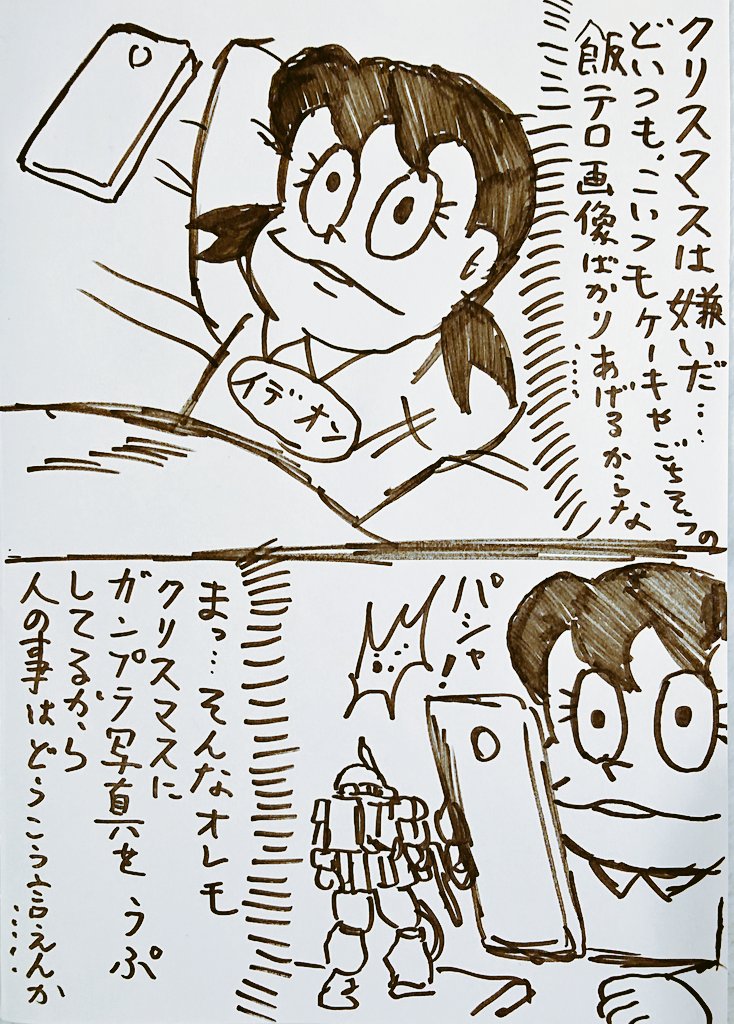 クリスマスは嫌いだ‥‥
どいつも、こいつモケーキやごちそうの
飯テロ画像ばかりあげるからな
‥‥‥
イデオン
パシャ!
まっ…そんなオレモ
クリスマスに
ガンプラ写真を うぷ
してるから
人の事はどうこう言えんか
‥‥‥